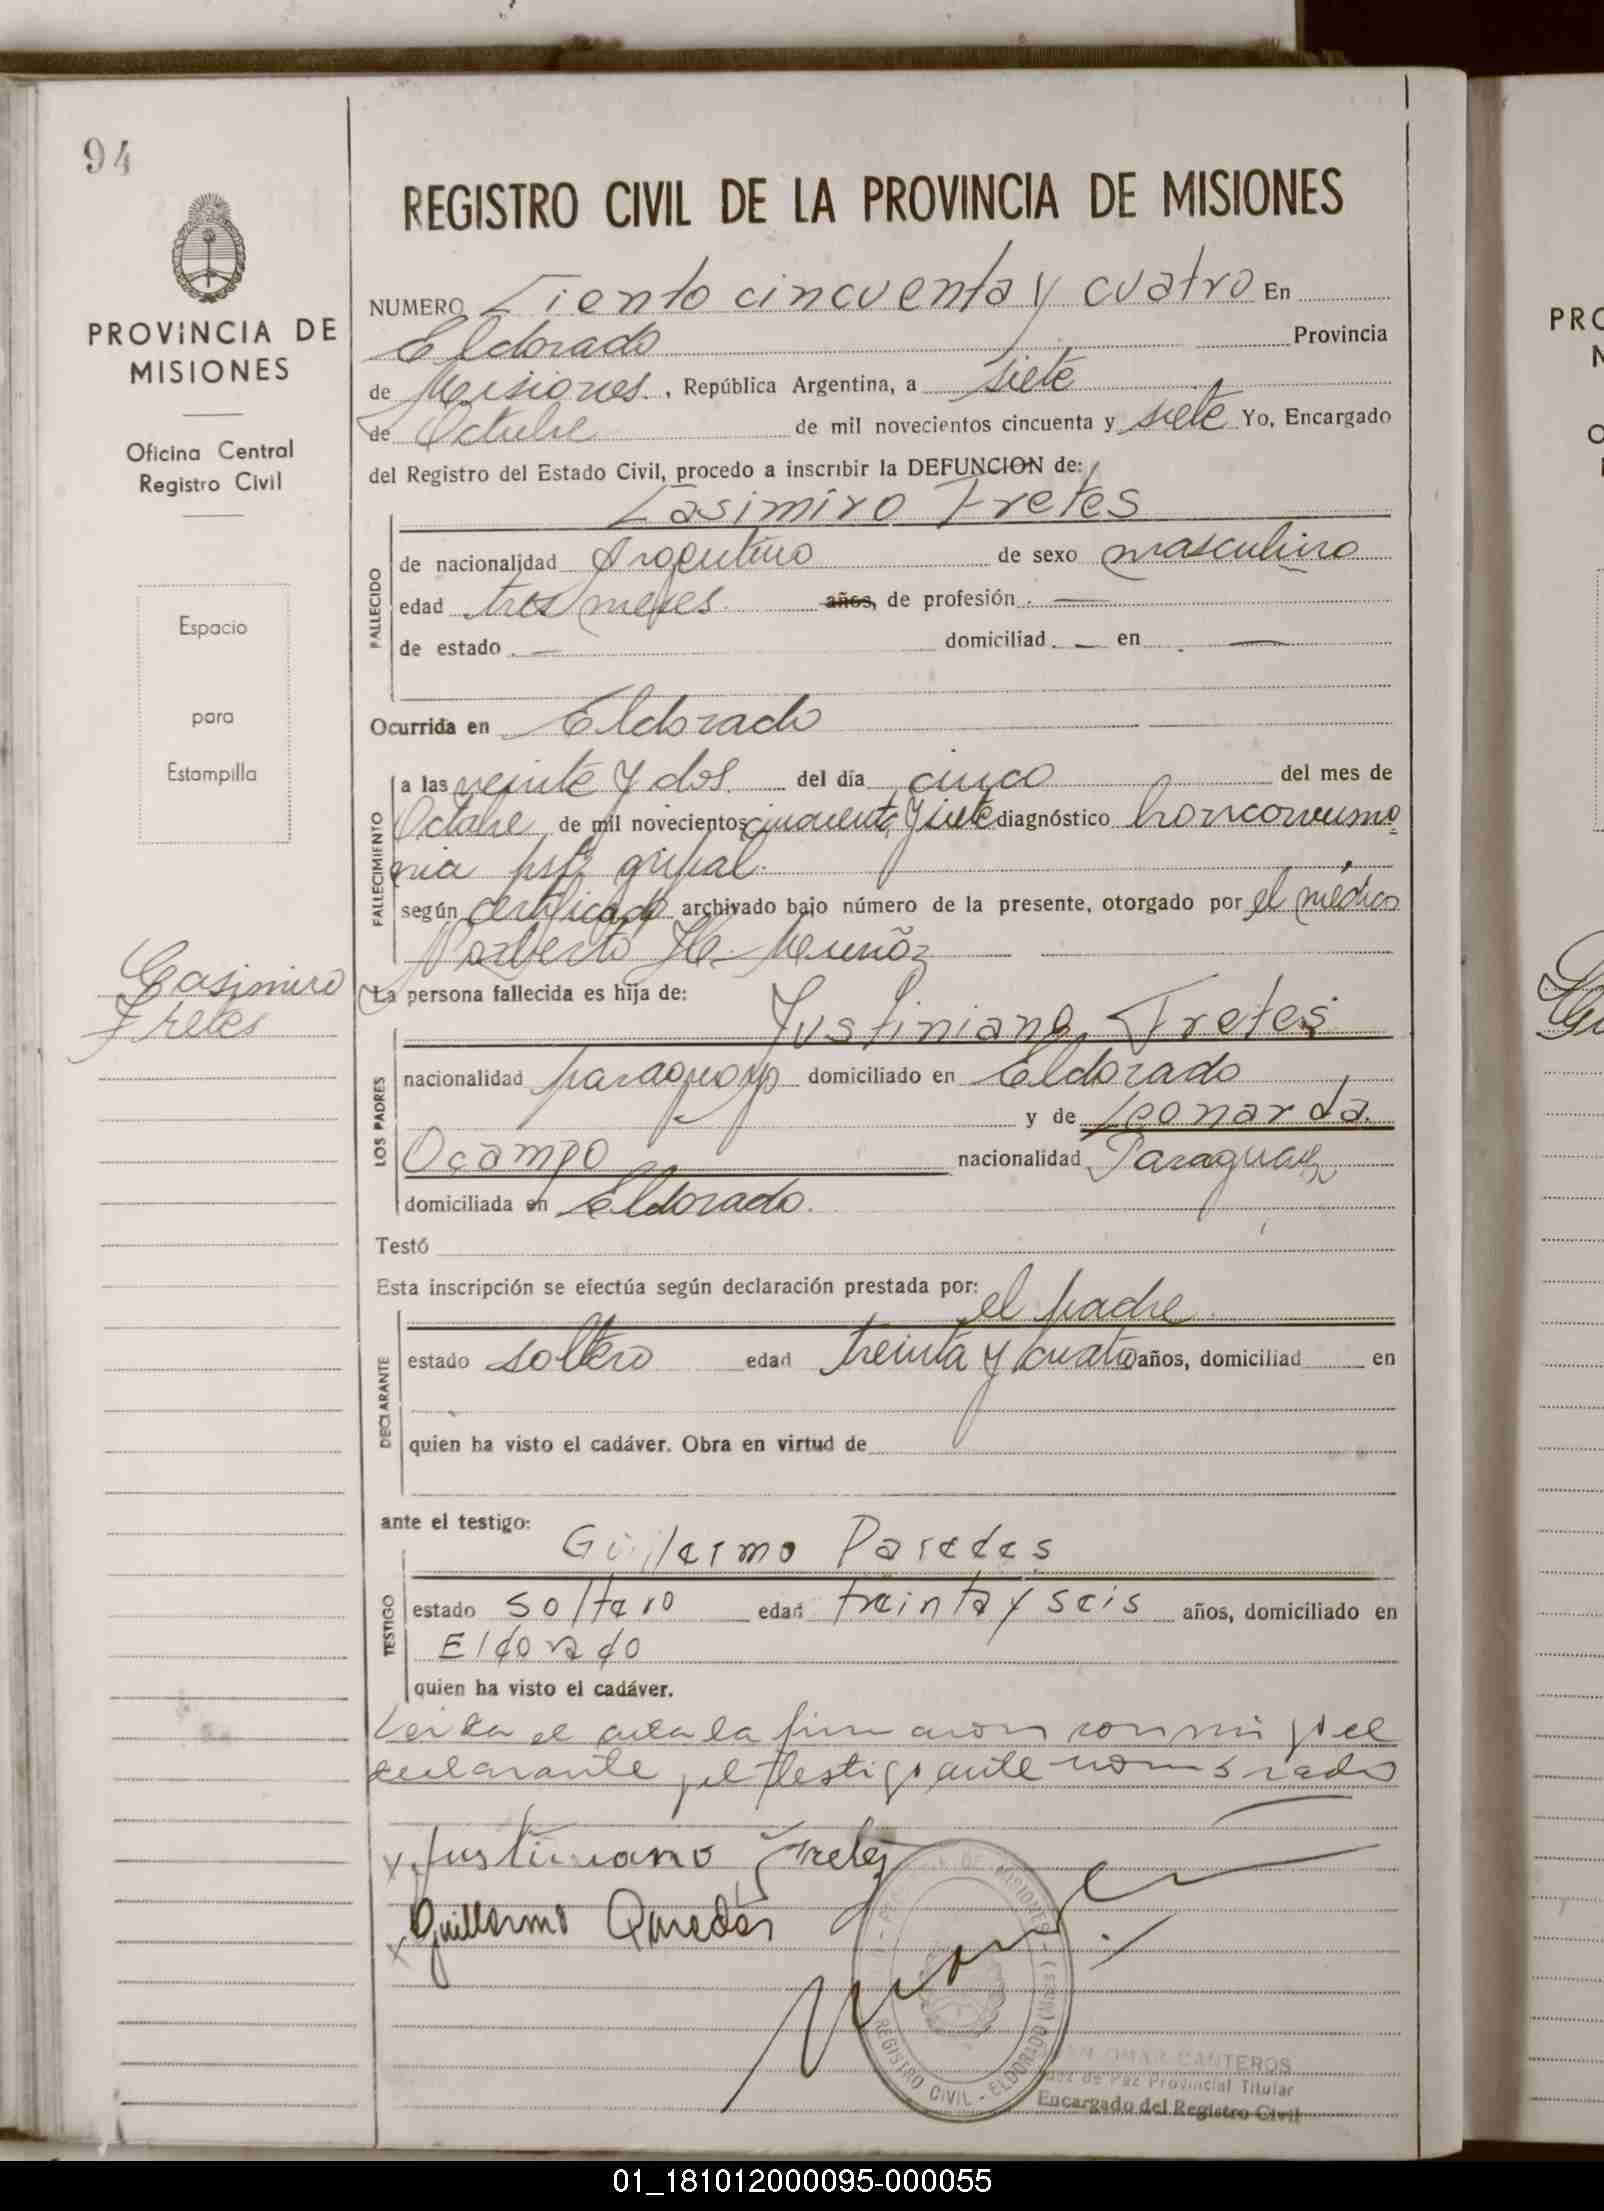 94
PROVINCIA DE
MISIONES
Oficina Central
Registro Civil
Espacio
para
Estampilla
Casimiro
Fretes
REGISTRO CIVIL DE LA PROVINCIA DE MISIONES
NUMERO Ciento cincuenta y cuatro En
Eldorado Provincia
de Misiones, República Argentina, a siete
de Octubre de mil novecientos cincuenta y siete Yo, Encargado
del Registro del Estado Civil, procedo a inscribir la DEFUNCION de:
Casimiro Fretes
FALLECIDO
de nacionalidad Argentino de sexo masculino
edad tres meses años, de profesión —
de estado — domiciliad — en —
Ocurrida en Eldorado
FALLECIMIENTO
a las veinte y dos del día cinco del mes de
Octubre de mil novecientos cincuenta y siete diagnóstico bronconeumo
nia post gripal.
según certificado archivado bajo número de la presente, otorgado por el médico
Norberto H. Muñoz
La persona fallecida es hija de:
Justiniano Fretes
LOS PADRES
nacionalidad paraguayo domiciliado en Eldorado
y de Leonarda
Ocampo nacionalidad Paraguay
domiciliada en Eldorado.
Testó
Esta inscripción se efectúa según declaración prestada por:
el padre
DECLARANTE
estado soltero edad treinta y cuatro años, domiciliad en
quien ha visto el cadáver. Obra en virtud de
ante el testigo:
Guillermo Paredes
TESTIGO
estado soltero edad treinta y seis años, domiciliado en
Eldorado
quien ha visto el cadáver.
Leida el acta la firmaron conmigo el
declarante y el testigo ante nombrado
x Justiniano Fretes
x Guillermo Paredes
DE MISIONES
REGISTRO CIVIL - ELDORADO (MIS.)
OMAR CANTEROS
Juez de Paz Provincial Titular
Encargado del Registro Civil
PRO
01_181012000095-000055